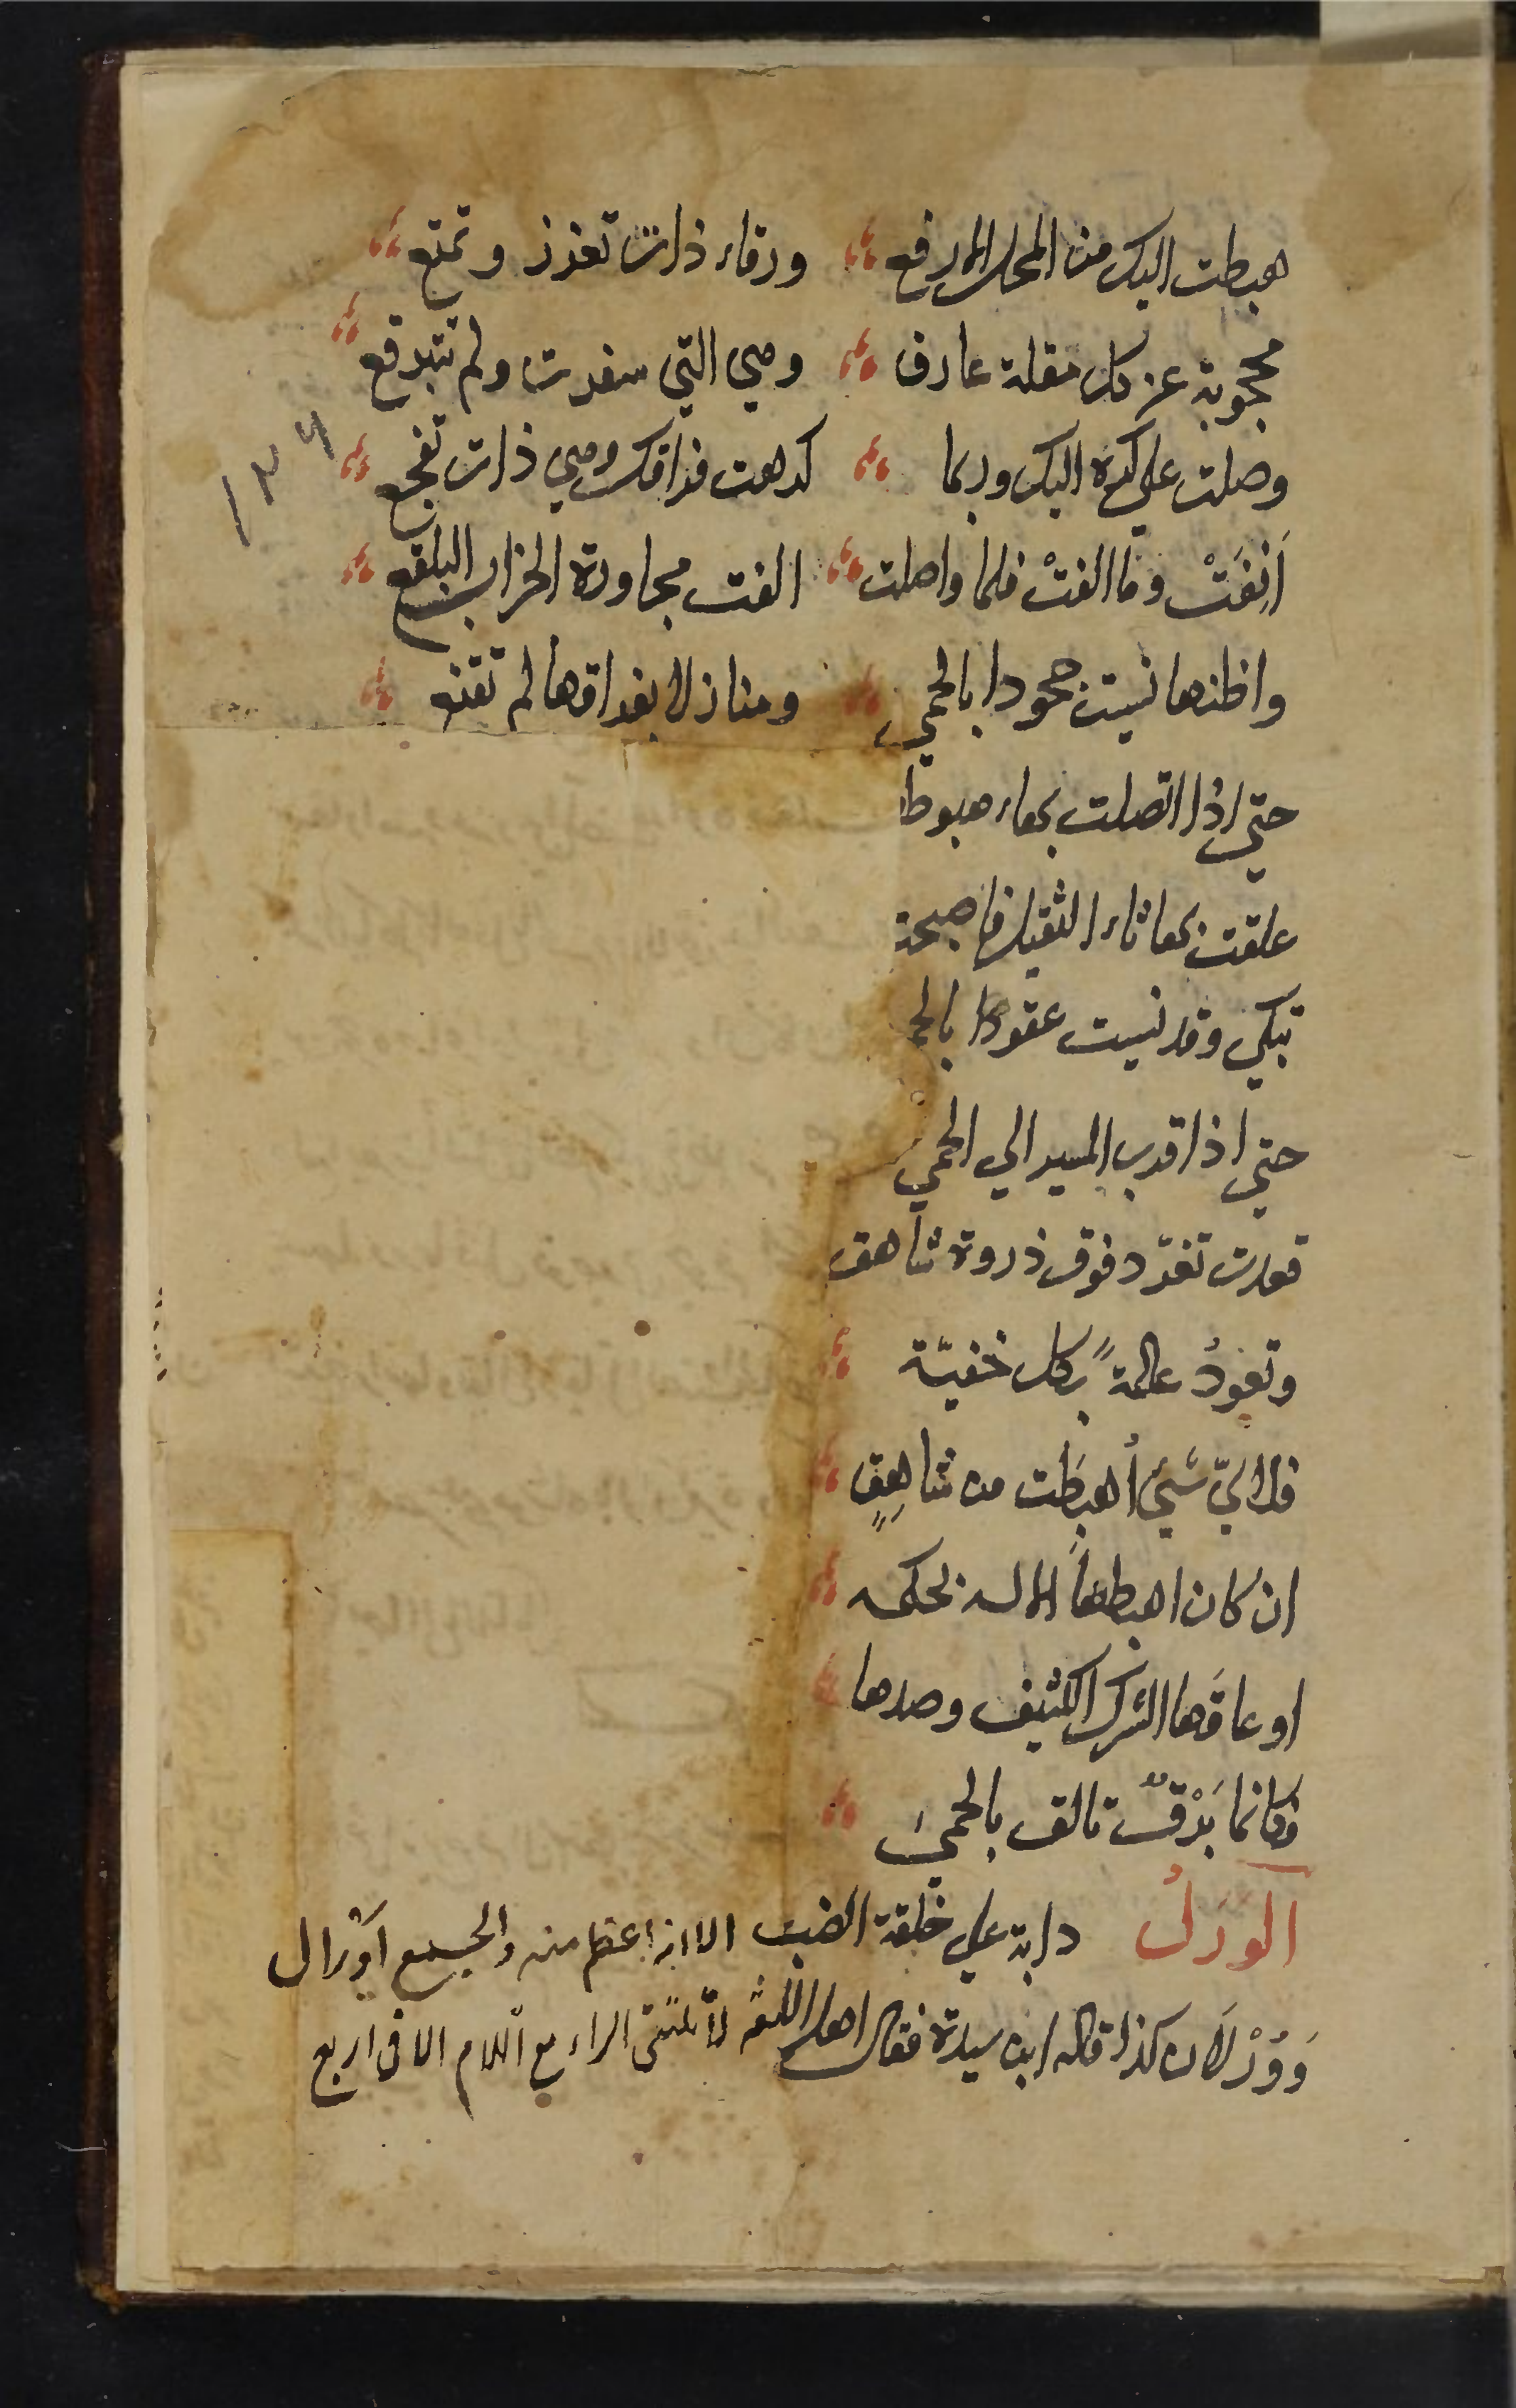 هبطت اليك من المحل الارفع ورقاء ذات تعزز وتمنع
محجوبة عن كل مقلة عارف وهي التي سفرت ولم تتبرقع
وصلت علي كره اليك وربما كرهت فراقك وهي ذات تفجع
١٣٩
اَنِفَتْ وما الفتْ فلما واصلت الفت مجاورة الخراب البلقع
واظنها نسيت جحودا بالحمي ومنازلا بفراقها لم تقنع
حتي اذا اتصلت بهاء هبوطا
علقت بها ثاء الثقيل فاصبحت
تبكي وقد نسيت عقودا بالحم
حتي اذا قرب المسير الي الحمي
قعدت تغرّد فوق ذروة شاهق
وتعودُ عالمةً بكل خفيّة
فلاايّ شيْ أُهبطت من شاهِقٍ
ان كان اهبطها الاله لحكمه
او عاقَها الشرك الكثيف وصدها
فكانما بَرْقٌ تالق بالحمي
الوَرَلُ دابة علي خلقة الضب الا انه اعظم منه والجمع اَوْرال
وَوُرْلَان كذا قاله ابن سيدة فقال اهل اللغة لا تلتقي الراء مع اللام الا في اربع